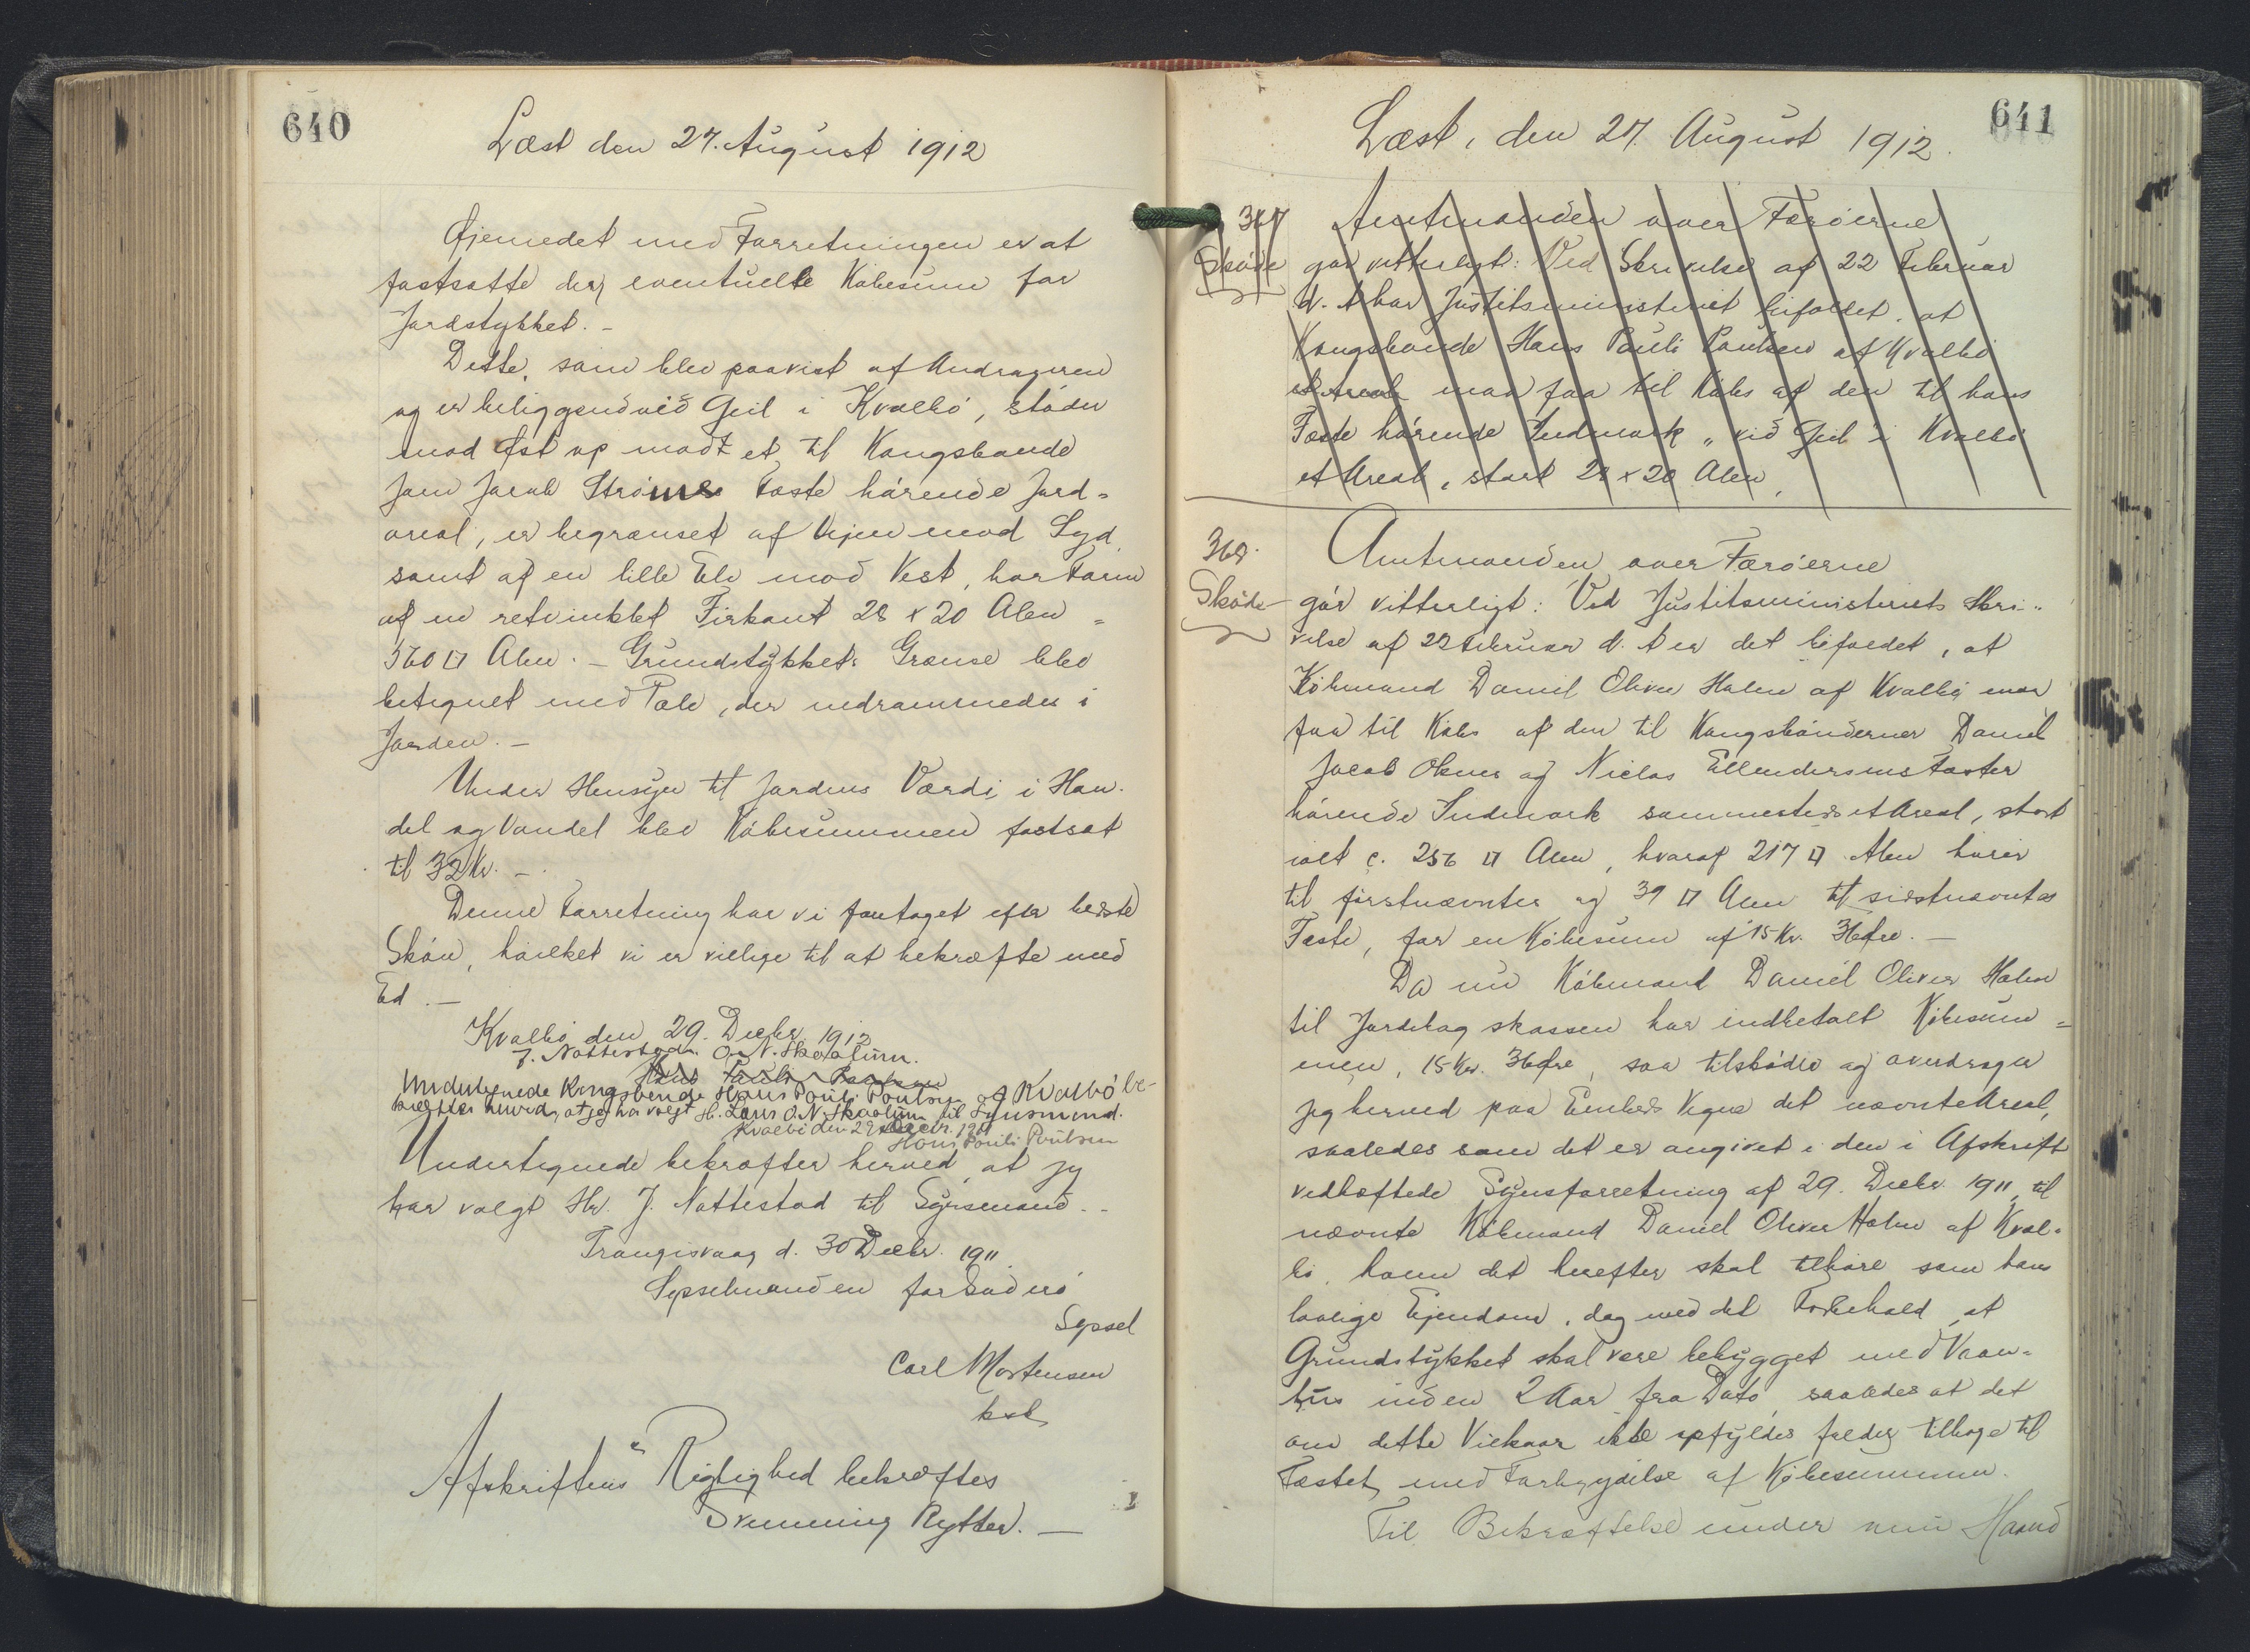 640
Læst den 27. August 1912
Øjemedet med Forretningen er at
fastsætte den eventuelle Købesum for
Jordstykket. –
Dette, som blev paavist af Andrageren
og er beliggende við Geil i Kvalbø, støder
mod Øst op mod et til Kongsbonde
Joen Jacob Strøms Fæste hørende Jord-
areal, er begrænset af Vejen mod Syd
samt af en lille Elv mod Vest, har Form
af en retvinklet Firkant 28 x 20 Alen =
560 □ Alen. – Grundstykkets Grænse blev
betegnet med Pæle, der nedrammedes i
Jorden. –
Under Hensyn til Jordens Værdi i Han-
del og Vandel blev Købesummen fastsat
til 32 Kr. –
Denne Forretning har vi foretaget efter bedste
Skøn, hvilket vi er villige til at bekræfte med
Ed. –
Kvalbø den 29. Decbr. 1912
J. Nattestad. O. N. Skaalum.
Hans Pauli Poulsen
Undertegnede Kongsbonde Hans Pauli Poulsen af Kvalbø be-
kræfter herved, at jeg har valgt Hr. Lars O. N. Skaalum til Synsmand.
Kvalbø den 29 Decbr. 1911
Hans Pauli Poulsen
Undertegnede bekræfter herved, at jeg
har valgt Hr. J. Nattestad til Synsmand. –
Trangisvaag d. 30 Decbr. 1911
Sysselmanden for Suderø
Syssel
Carl Mortensen
kst.
Afskriftens Rigtighed bekræftes
Svenning Rytter. –
641
Læst, den 27. August 1912.
367 Amtmanden over Færøerne
Skøde gør vitterligt: Ved Skrivelse af 22 Februar
d. A har Justitsministeriet bifaldet, at
Kongsbonde Hans Pauli Poulsen af Kvalbø
et Areal maa faa til Købs af den til hans
Fæste hørende Indmark „við Geil" i Kvalbø
et Areal, stort 28 x 20 Alen,
368. Amtmanden over Færøerne
Skøde gør vitterligt: Ved Justitsministeriets Skri-
velse af 22 Februar d. A er det bifaldet, at
Købmand Daniel Oliver Holm af Kvalbø maa
faa til Købs af den til Kongsbønderne Daniel
Jacob Olsens og Niclas Ellendersens Fæster
hørende Indmark sammesteds et Areal, stort
ialt c. 256 □ Alen, hvoraf 217 □ Alen hører
til førstnævntes og 39 □ Alen til sidstnævntes
Fæste, for en Købesum af 15 Kr. 36 Øre. –
Da nu Købmand Daniel Oliver Holm
til Jordebogskassen har indbetalt Købesum-
men, 15 Kr. 36 Øre, saa tilskøder og overdrager
jeg herved paa Embeds Vegne det nævnte Areal,
saaledes som det er angivet i den i Afskrift
vedhæftede Synsforretning af 29. Decbr. 1911, til
nævnte Købmand Daniel Oliver Holm af Kval-
bø, ham det herefter skal tilhøre som hans
lovlige Ejendom, dog med det Forbehold, at
Grundstykket skal være bebygget med Vaan-
hus inden 2 Aar fra Dato, saaledes at det
om dette Vilkaar ikke opfyldes falder tilbage til
Fæstet med Forbrydelse af Købesummen.
Til Bekræftelse under min Haand